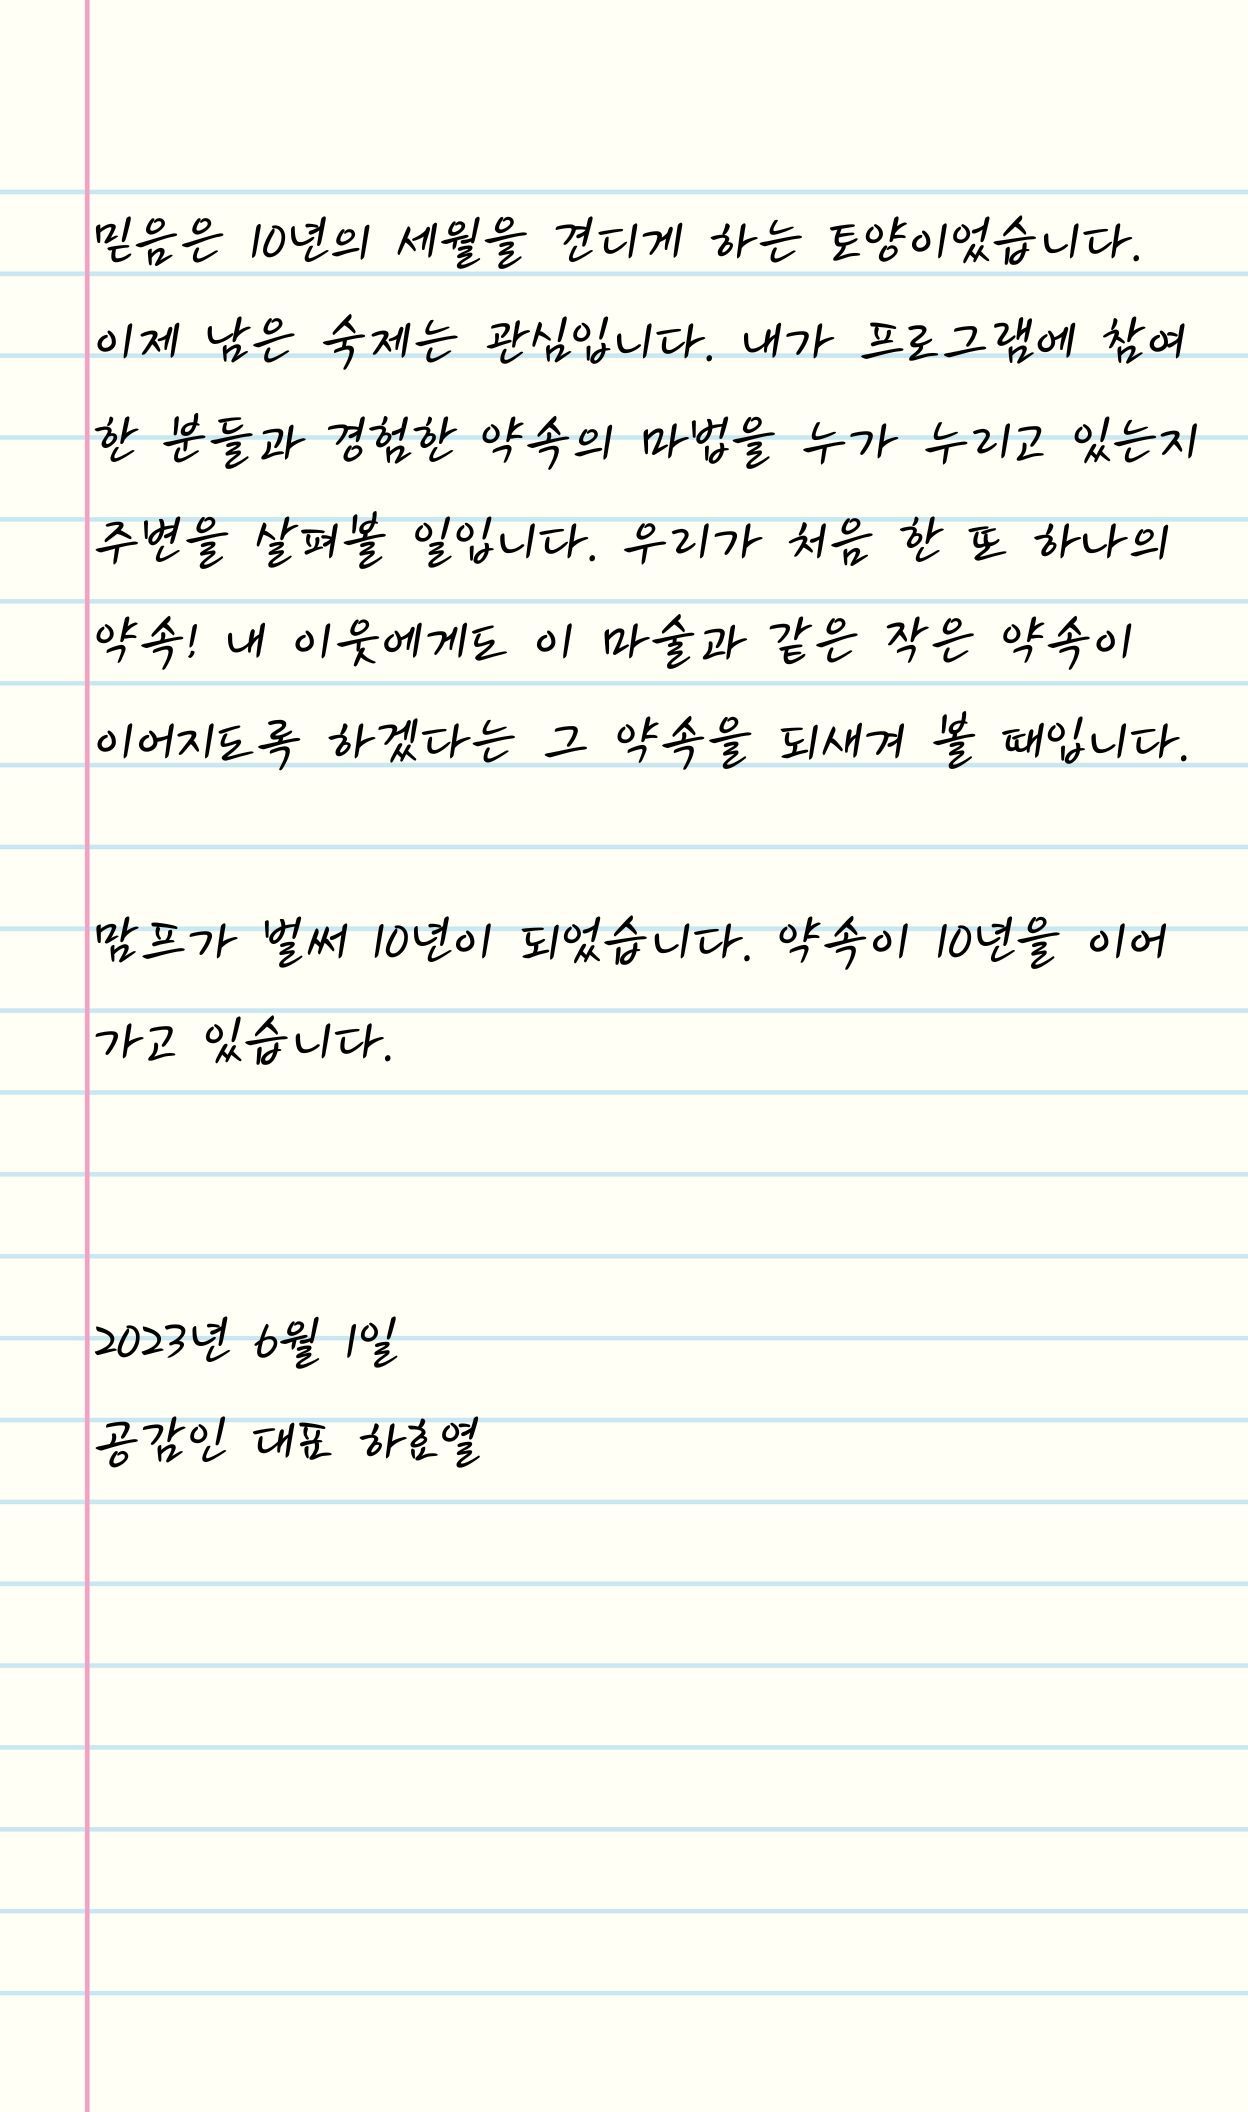 믿음은 10년의 세월을 견디게 하는 토양이었습니다.
이제 남은 숙제는 관심입니다. 내가 프로그램에 참여
한 분들과 경험한 약속의 마법을 누가 누리고 있는지
주변을 살펴볼 일입니다. 우리가 처음 한 또 하나의
약속! 내 이웃에게도 이 마술과 같은 작은 약속이
이어지도록 하겠다는 그 약속을 되새겨 볼 때입니다.
맘프가 벌써 10년이 되었습니다. 약속이 10년을 이어
가고 있습니다.
2023년 6월 1일
공감인 대표 하효열